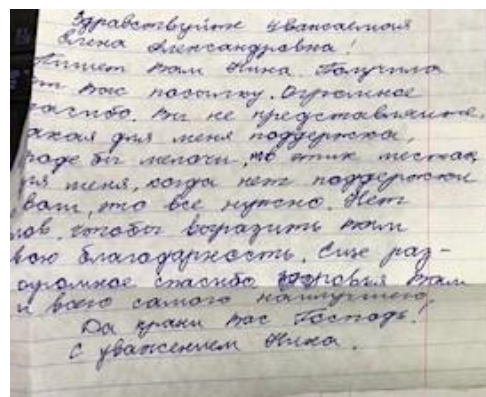 Здравствуйте уважаемая
Елена Александровна!
Пишет Вам Нина. Получила
от Вас посылку. Огромное
спасибо. Вы не представляете,
акая для меня поддержка,
роде бы мелочи, но в этих местах,
ля меня, когда нет поддержки
вам, то все нужно. Нет
лов, чтобы выразить Вам
вою благодарность. Еще раз-
огромное спасибо здоровья Вам
и всего самого наилучшего.
Да храни Вас Господь!
С уважением Нина.